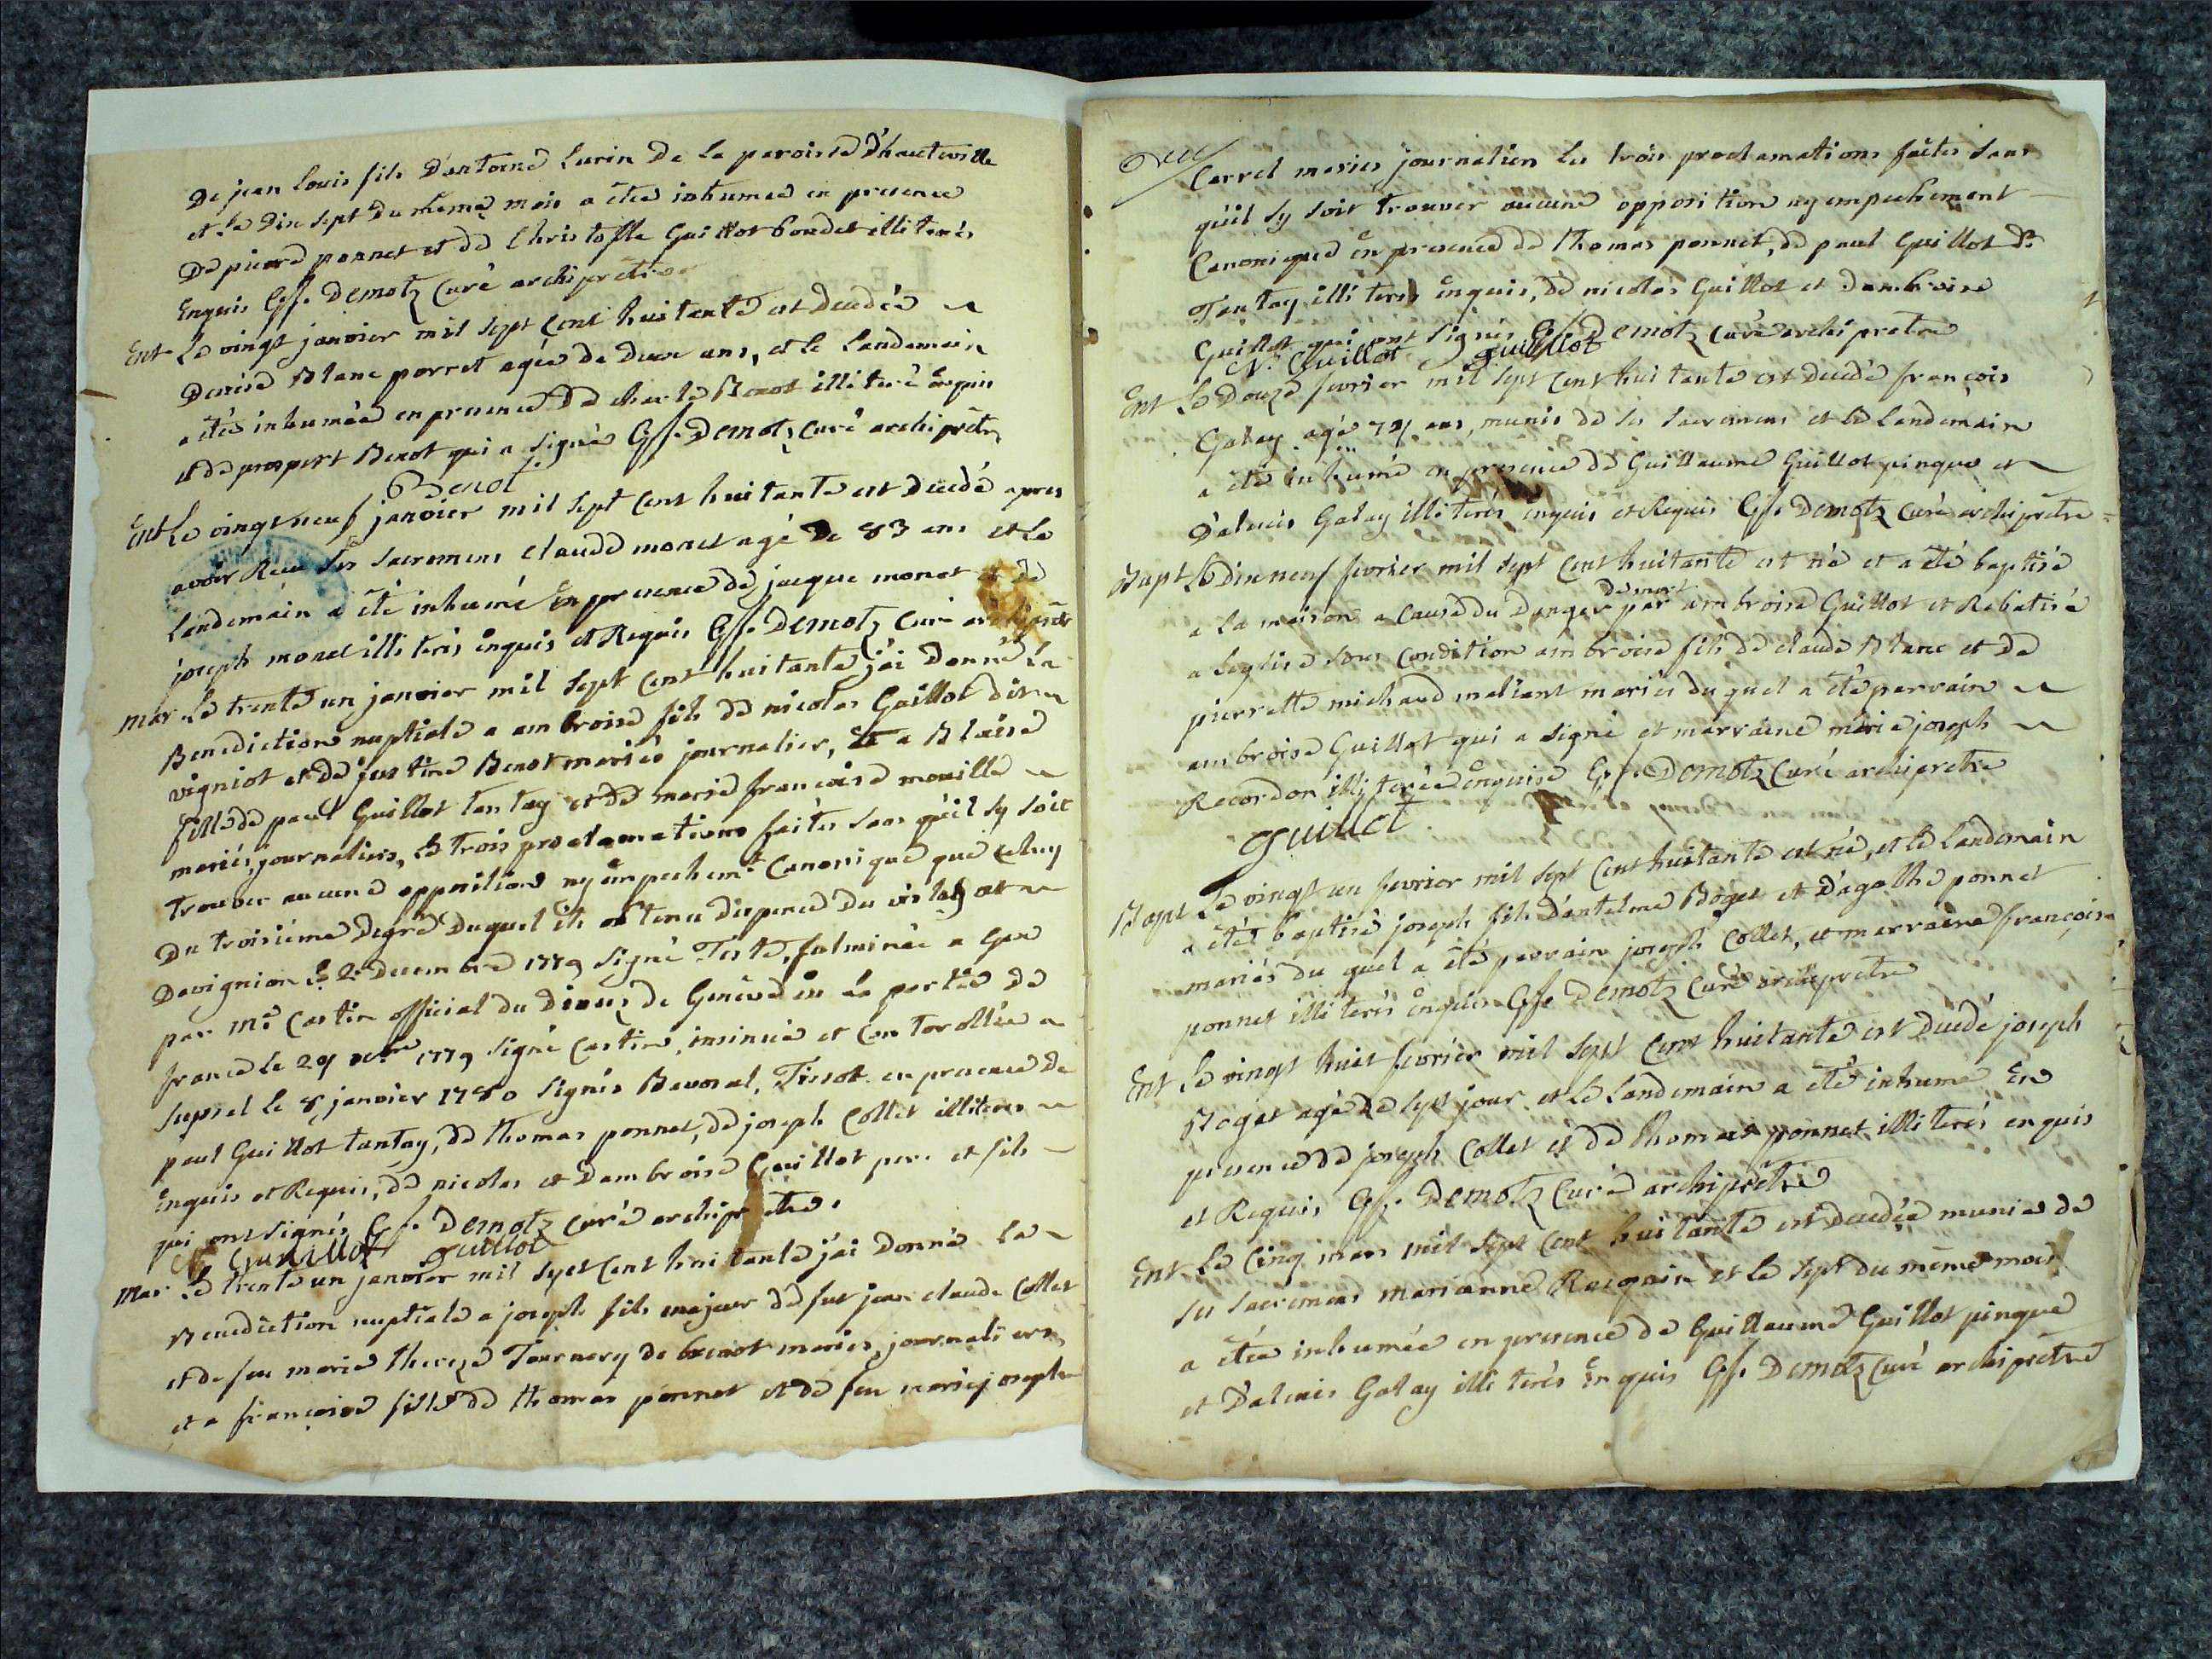 De jean Louis fils D'antoine Lurin De la paroisse D'hauteville
et le Dix sept du meme mois a étée inhumée en presence
De pierre ponnet et de Christofle Guillot boudet illiterés
Enquis Gf. Demotz Curé archiprêtre
Ent Le vingt janvier mil sept cent huitante est decedée
Denise Blanc porret agée de deux ans, et le landemain
a étée inhumée en presence De charle Benot illiteré enquis
et de prospert Benot qui a signé Gf. Demotz Curé archiprêtre
Benot
Ent Le vingt neuf janvier mil sept cent huitante est decedé apres
avoir Reçu ses sacremens claude monet agé de 83 ans et le
landemain a été inhumé En presence de jacque monet et de
joseph monet illiterés enquis et Requis Gf. Demotz Curé archiprêtre
mar Le trente un janvier mil sept cent huitante j'ai donné la
Benediction nuptiale a ambroise fils de nicolas Guillot dit
vigniot et de justine Benot mariés journalier, et a Blaise
fille de paul Guillot tantay et de marie françoise mouille
mariés, journaliers, les trois proclamations faites sans qu'il sy soit
trouver aucune opposition ny empechemt Canonique que celuy
Du troisiéme degré Duquel ils ont tenu dispence du vislegat
Davignion le 2 Decembre 1779 signé Teste, fulminée a Gex
par Mre Castin official du Diocez de Genève en la partie de
france le 29 Xbre 1779 signé Castin, insinuée et Contorollée a
Supsel le 8 janvier 1780 signés Tissot en presence de
paul Guillot tantay, de thomas ponnet, de joseph Collet illiterés
Enquis et Requis, de nicolas et Dambroise Guillot pere et fils
qui ont signés Gf. Demotz Curé archiprêtre.
N. Guillot guillot
Mar Le trente un janvier mil sept cent huitante j'ai Donné la
Benediction nuptiale a joseph fils majeur de fut jean claude Collet
et de feu marie thereze Tournery de benot mariés, journaliers,
et a françoise fille de thomas ponnet et de feu marie josephe
Carrel mariés journaliers les trois proclamations faites sans
qu'il sy soit trouver aucune opposition ny empechement
Canonique En presence de thomas ponnet, de paul Guillot dt
Tantay illiterés enquis, de nicolas Guillot et Dambroise
Guillot qui ont signés Gf. Demotz Curé archiprêtre
N. Guillot guillot
Ent Le Douze fevrier mil sept cent huitante est decedé françois
Galay agé 74 ans, munis de ses sacremens et le landemain
a été inhumé en presence de Guillaume Guillot pinque et
D'alexis Galay illiterés enquis et Requis Gf. Demotz Curé archiprêtre
Bapt Le dix neuf fevrier mil sept cent huitante est né et a été baptisé
de mort
a la maison a cause du Danger par ambroise Guillot et Rebatisé
a leglise sous condition ambroise fils de claude Blanc et de
pierrette michaud maliant mariés duquel a été parrain
ambroise Guillot qui a signé et marraine marie joseph
Recordon illiterée enquise Gf. Demotz Curé archiprêtre
guillot
Bapt Le vingt un fevrier mil sept cent huitante est né, et le landemain
a été baptisé joseph fils d'antelme Boget et D'agathe ponnet
mariés du quel a été parrain joseph Collet, et marraine françoise
ponnet illiterés enquis Gf. Demotz Curé archiprêtre
Ent Le vingt huit fevrier mil sept cent huitante est decedé joseph
Boget agé de sept jour et le landemain a été inhumé En
presence de joseph Collet et de thomas ponnet illiterés enquis
et Requis Gf. Demotz Curé archiprêtre
Ent Le Cinq mars mil sept cent huitante est decedée munies de
ses sacremens marianne et le sept du même mois
a étée inhumée en presence de Guillaume Guillot pinque
et D'alexis Galay illiterés Enquis Gf. Demotz Curé archiprêtre